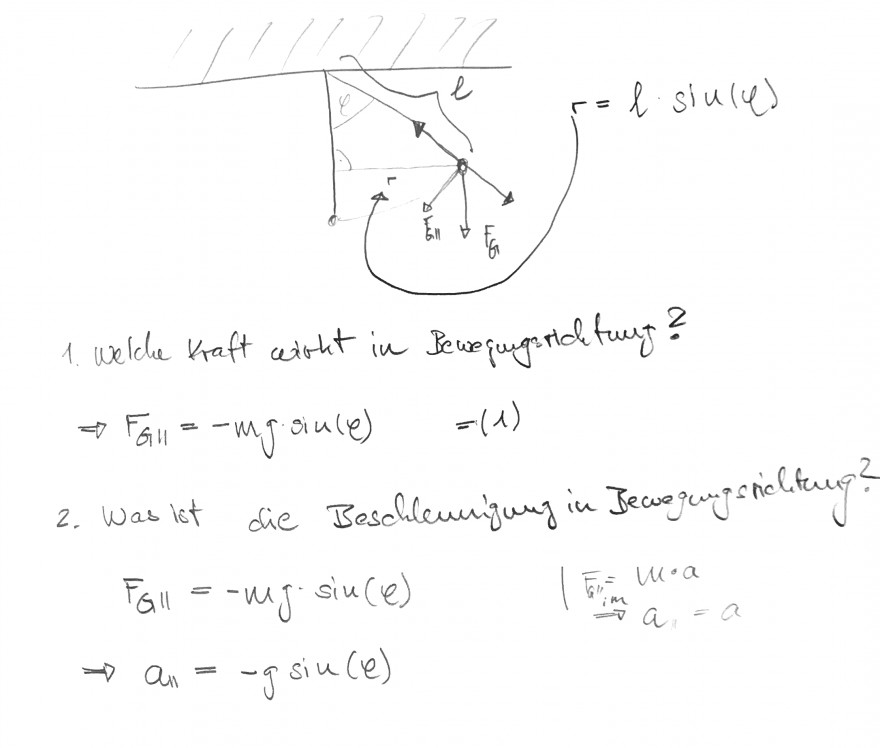 φ
l
r = l · sin(φ)
r
F_G||
F_G
1. Welche Kraft wirkt in Bewegungsrichtung?
⇒ F_G|| = -mg · sin(φ) =(1)
2. Was ist die Beschleunigung in Bewegungsrichtung?
F_G|| = -mg · sin(φ) | F_G|| = m · a
⇒ a_|| = a
⇒ a_|| = -g sin(φ)